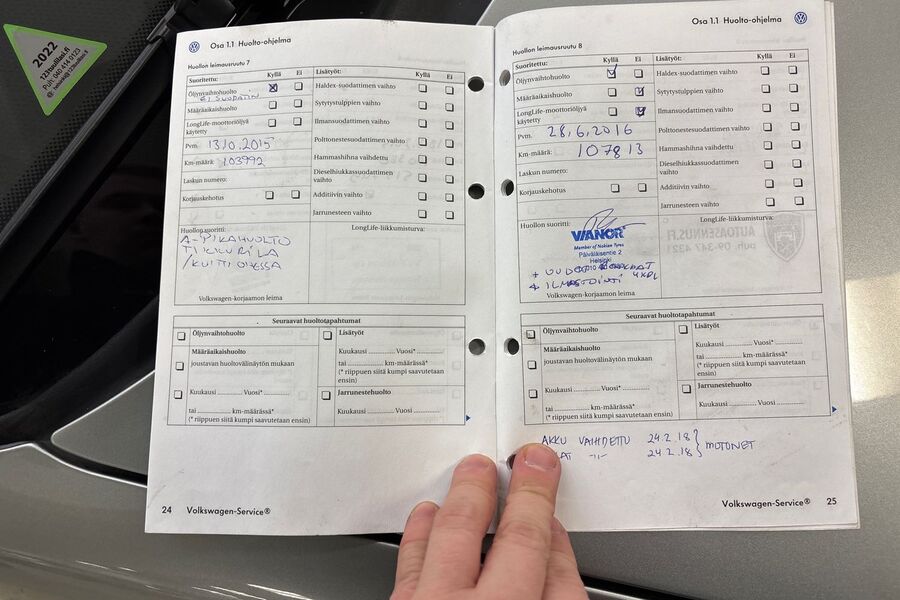 2022
123tuulilasi.fi
Puh: 040 414 0123
Osa 1.1 Huolto-ohjelma
Huollon leimausruutu 7
Suoritettu: Kyllä Ei Lisätyöt: Kyllä Ei
Öljynvaihtohuolto
EI SUODATIN
Haldex-suodattimen vaihto
Määräaikaishuolto
Sytytystulppien vaihto
LongLife-moottoriöljyä
käytetty
Ilmansuodattimen vaihto
Pvm. 13.10.2015
Polttonestesuodattimen vaihto
Km-määrä: 103992
Hammashihna vaihdettu
Laskun numero:
Dieselhiukkassuodattimen
vaihto
Korjauskehotus
Additiivin vaihto
Jarrunesteen vaihto
Huollon suoritti: LongLife-liikkumisturva:
A-PIKAHUOLTO
TIKKURILA
/KUITTI OHESSA
Volkswagen-korjaamon leima
Seuraavat huoltotapahtumat
Öljynvaihtohuolto
Määräaikaishuolto
joustavan huoltovälinäytön mukaan
Kuukausi ............ Vuosi* ............
tai ........................ km-määrässä*
(* riippuen siitä kumpi saavutetaan ensin)
Lisätyöt
Kuukausi ............ Vuosi* ............
tai ........................ km-määrässä
(* riippuen siitä kumpi saavutetaan
ensin)
Jarrunestehuolto
Kuukausi ............ Vuosi ............
24 Volkswagen-Service®
Osa 1.1 Huolto-ohjelma
Huollon leimausruutu 8
Suoritettu: Kyllä Ei Lisätyöt: Kyllä Ei
Öljynvaihtohuolto
Haldex-suodattimen vaihto
Määräaikaishuolto
Sytytystulppien vaihto
LongLife-moottoriöljyä
käytetty
Ilmansuodattimen vaihto
Pvm. 28.6.2016
Polttonestesuodattimen vaihto
Km-määrä: 107813
Hammashihna vaihdettu
Laskun numero:
Dieselhiukkassuodattimen
vaihto
Korjauskehotus
Additiivin vaihto
Jarrunesteen vaihto
Huollon suoritti: LongLife-liikkumisturva:
VIANOR
Member of Nokian Tyres
Päiväläisentie 2
Helsinki
+ UUDET
+ ILMASTOINTI
Volkswagen-korjaamon leima
AUTOASENNUS.FI
Seuraavat huoltotapahtumat
Öljynvaihtohuolto
Määräaikaishuolto
joustavan huoltovälinäytön mukaan
Kuukausi ............ Vuosi* ............
tai ........................ km-määrässä*
(* riippuen siitä kumpi saavutetaan ensin)
Lisätyöt
Kuukausi ............ Vuosi* ............
tai ........................ km-määrässä*
(* riippuen siitä kumpi saavutetaan
ensin)
Jarrunestehuolto
Kuukausi ............ Vuosi ............
AKKU VAIHDETTU 24.2.18
-11- 24.2.18 } MOTONET
Volkswagen-Service® 25